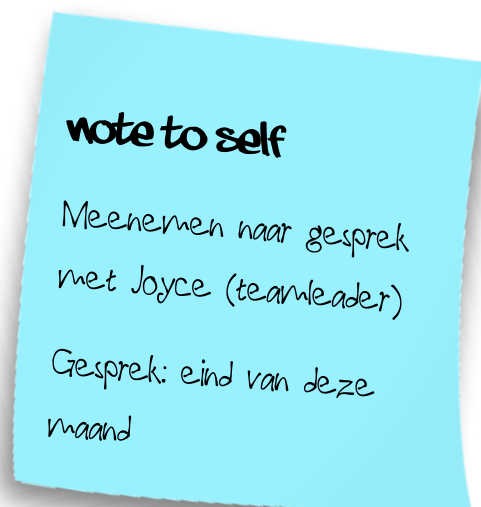 note to self
Meenemen naar gesprek
met Joyce (teamleader)
Gesprek: eind van deze
maand